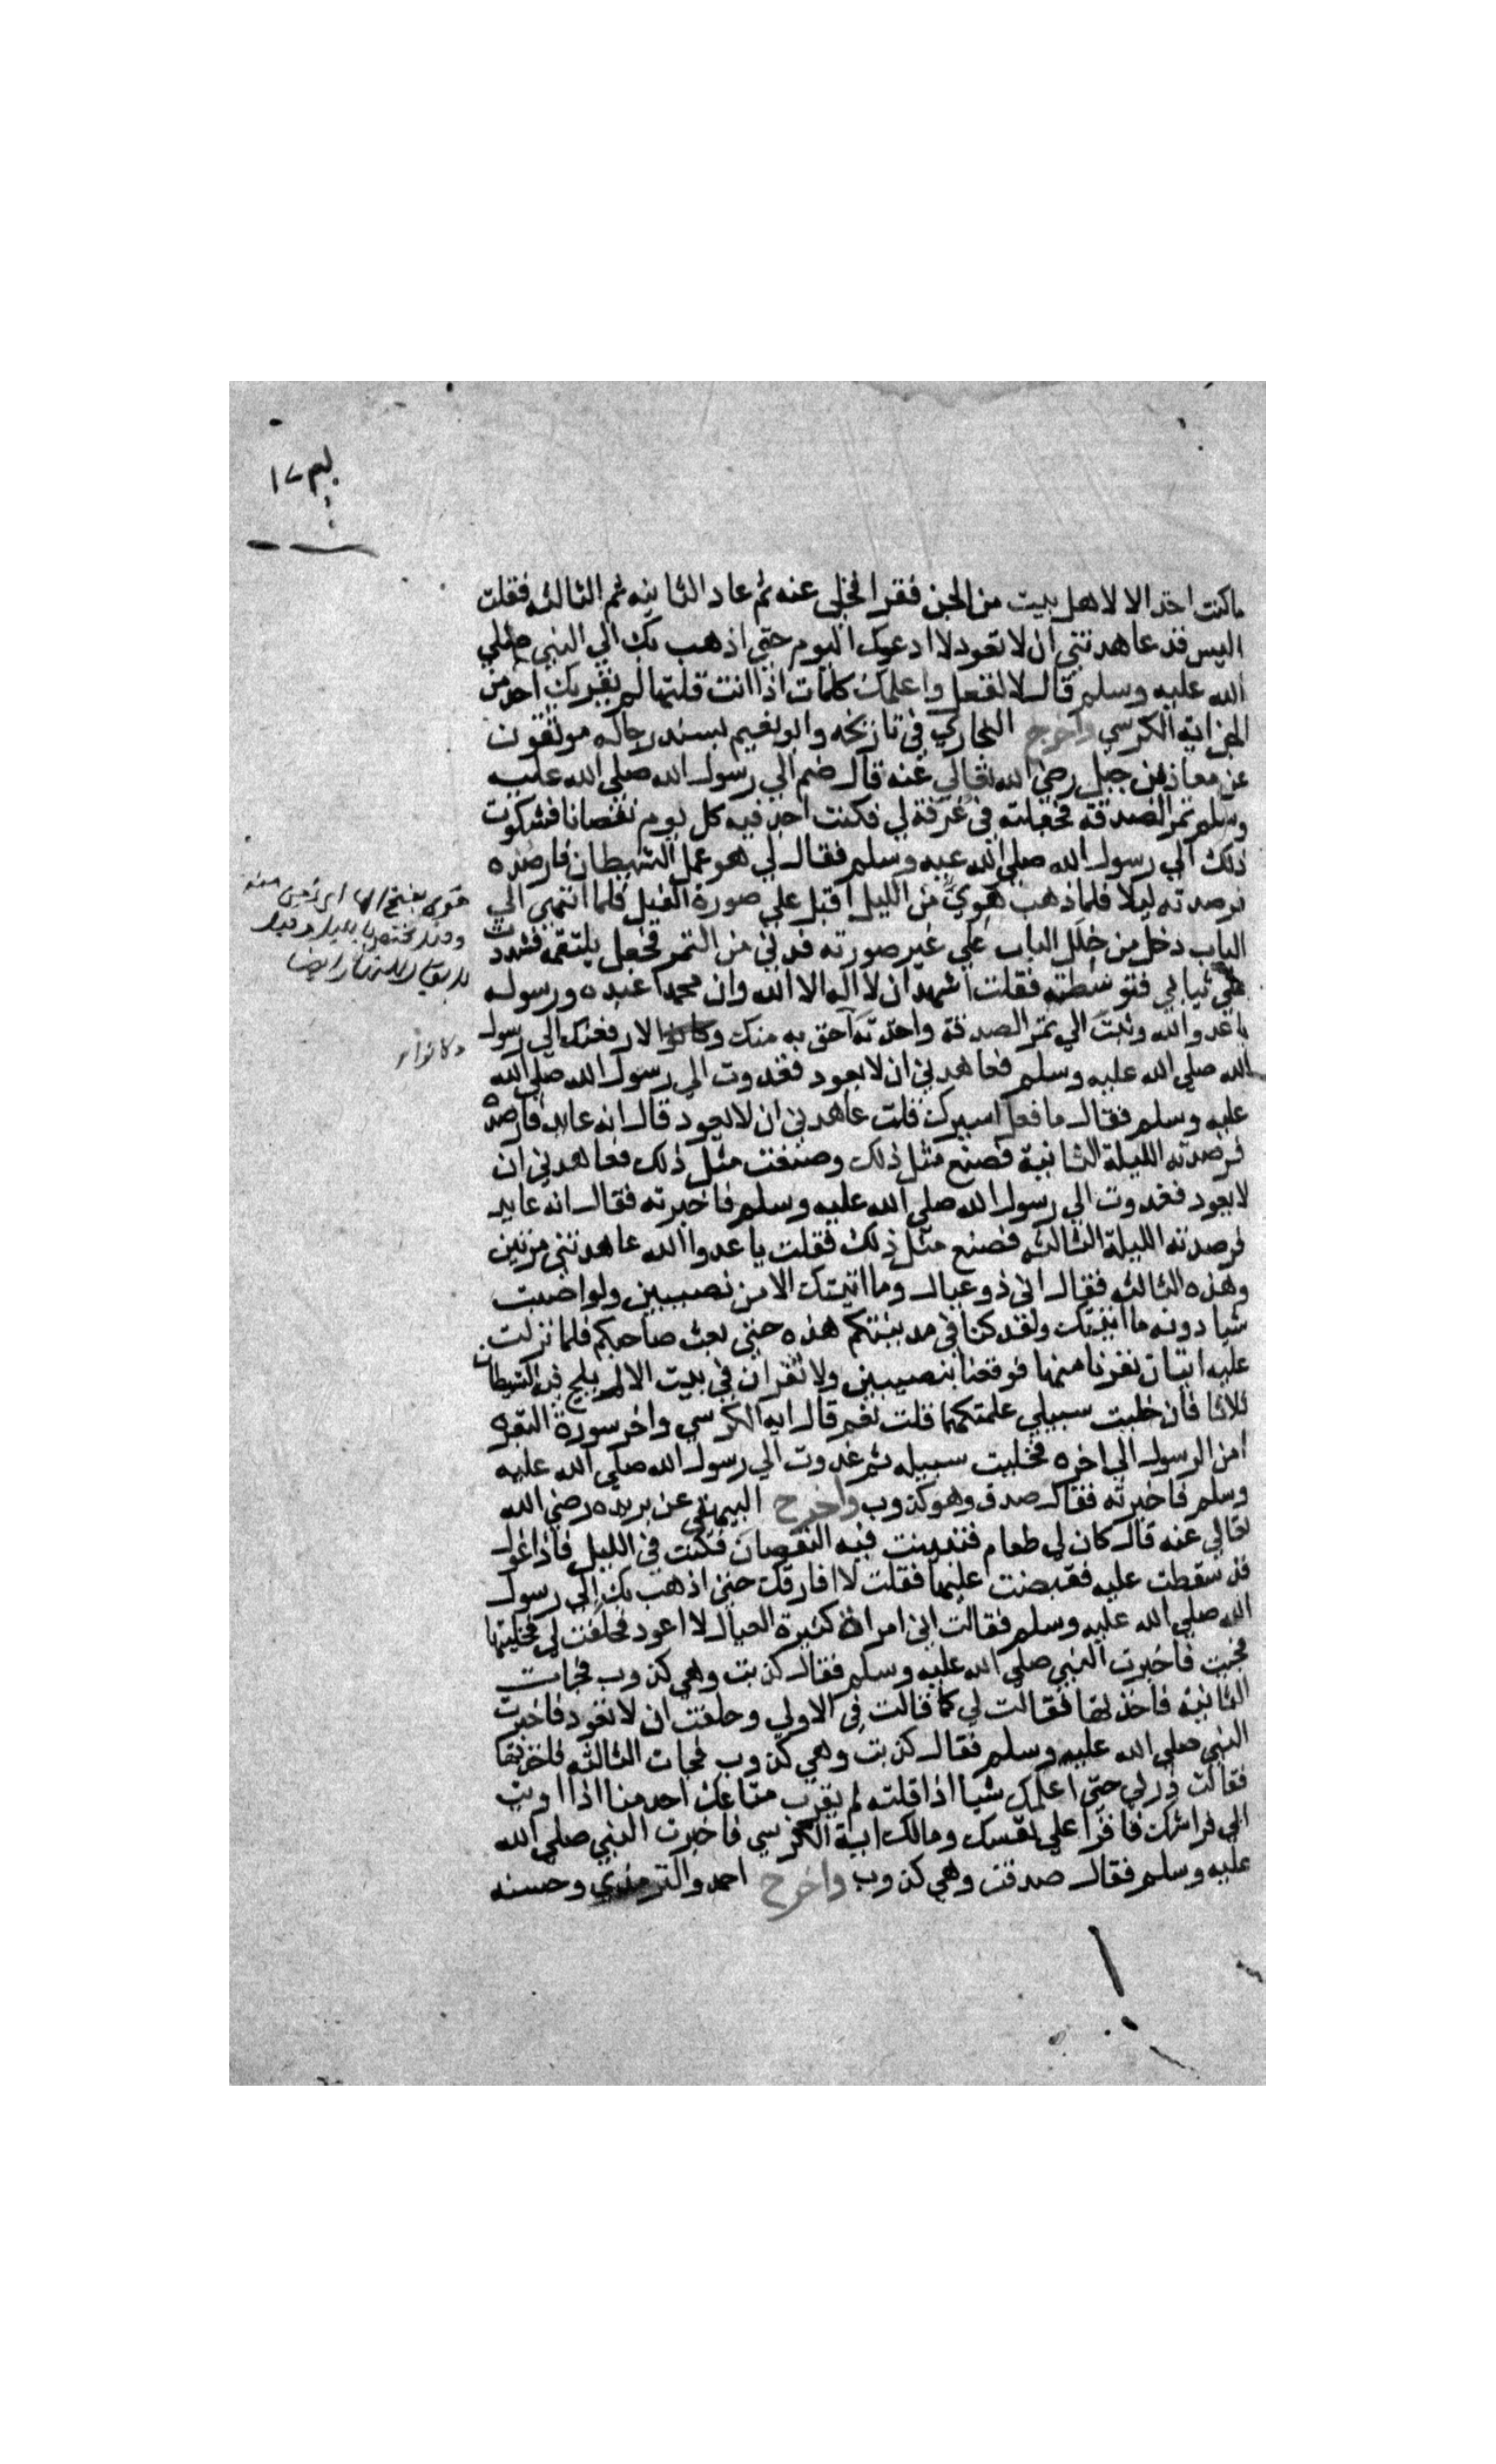 ما كنت اخذ الا لاهل بيت من الجن فقرا فخلى عنه ثم عاد الثانيه ثم الثالثه فقلت
اليس قد عاهدتني ان لا تعود لا ادعوك اليوم حتى اذهب بك الي النبي صلي
الله عليه وسلم قال لا تفعل واعلمك كلمات اذا انت قلتها لم يقربك احد من
الجن اية الكرسي واخرج البخاري في تاريخه وابو نعيم بسند رجاله موثقون
عن معاذ بن جبل رضي الله تعالي عنه قال ضم الي رسول الله صلي الله عليه
وسلم تمر الصدقة فجعلته في غرفة لي فكنت اجد فيه كل يوم نقصانا فشكوت
ذلك الي رسول الله صلي الله عيه وسلم فقال لي هو عمل الشيطان فارصده
فرصدته ليلا فلما ذهب هوي من الليل اقبل علي صورة الفيل فلما انتهى الي
الباب دخل من خلل الباب علي غير صورته فدني من التمر فجعل يلتقمه فشددت
علي ثيابي فتوسطته فقلت اشهد ان لا اله الا الله وان محمدا عبده ورسوله
يا عدو الله وثبت الي تمر الصدقة واخذته احق به منك وكانوا لارفعنك الي رسول
الله صلي الله عليه وسلم فعاهدني ان لا يعود فغدوت الي رسول الله صلي الله
عليه وسلم فقال ما فعل اسيرك قلت عاهدني ان لا يعود قال انه عايد فارصده
فرصدته الليلة الثانية فصنع مثل ذلك وصنعت مثل ذلك فعاهدني ان
لا يعود فغدوت الي رسول الله صلي الله عليه وسلم فاخبرته فقال انه عايد
فرصدته الليلة الثالثه فصنع مثل ذلك فقلت يا عدوا الله عاهدتني مرتين
وهذه الثالثه فقال اني ذو عيال وما اتيتك الا من نصيبين ولو اصبت
شيا دونه ما اتيتك ولقد كنا في مدينتكم هذه حتى بعث صاحبكم فلما نزلت
عليه ايتان نفرنا منها فوقعنا بنصيبين ولا تقران في بيت الا لم يلج فيه الشيطان
ثلاثا فان خليت سبيلي علمتكهما قلت نعم قال ايه الكرسي واخر سورة البقره
امن الرسول الي اخره فخليت سبيله ثم غدوت الي رسول الله صلي الله عليه
وسلم فاخبرته فقال صدق وهو كذوب واخرج البيهقي عن بريده رضي الله
تعالي عنه قال كان لي طعام فتبينت فيه النقصان فكنت في الليل فاذا غول
قد سقطت عليه فقبضت عليها فقلت لا افارقك حتى اذهب بك الي رسول
الله صلي الله عليه وسلم فقالت اني امراة كثيرة العيال لا اعود فحلفت لي فخليتها
فجيت فاخبرت النبي صلي الله عليه وسلم فقال كذبت وهي كذوب فجات
الثانيه فاخذتها فقالت لي كما قالت في الاولي وحلفت ان لا تعود فاخبرت
النبي صلي الله عليه وسلم فقال كذبت وهي كذوب فجات الثالثه فاخذتها
فقالت ذرني حتى اعلمك شيا اذا قلته لم يقرب متاعك احد منا اذا اويت
الي فراشك فاقرا علي نفسك ومالك اية الكرسي فاخبرت النبي صلي الله
عليه وسلم فقال صدقت وهي كذوب واخرج احمد والترمذي وحسنه
هوي بفتح الها اي
وكانوا